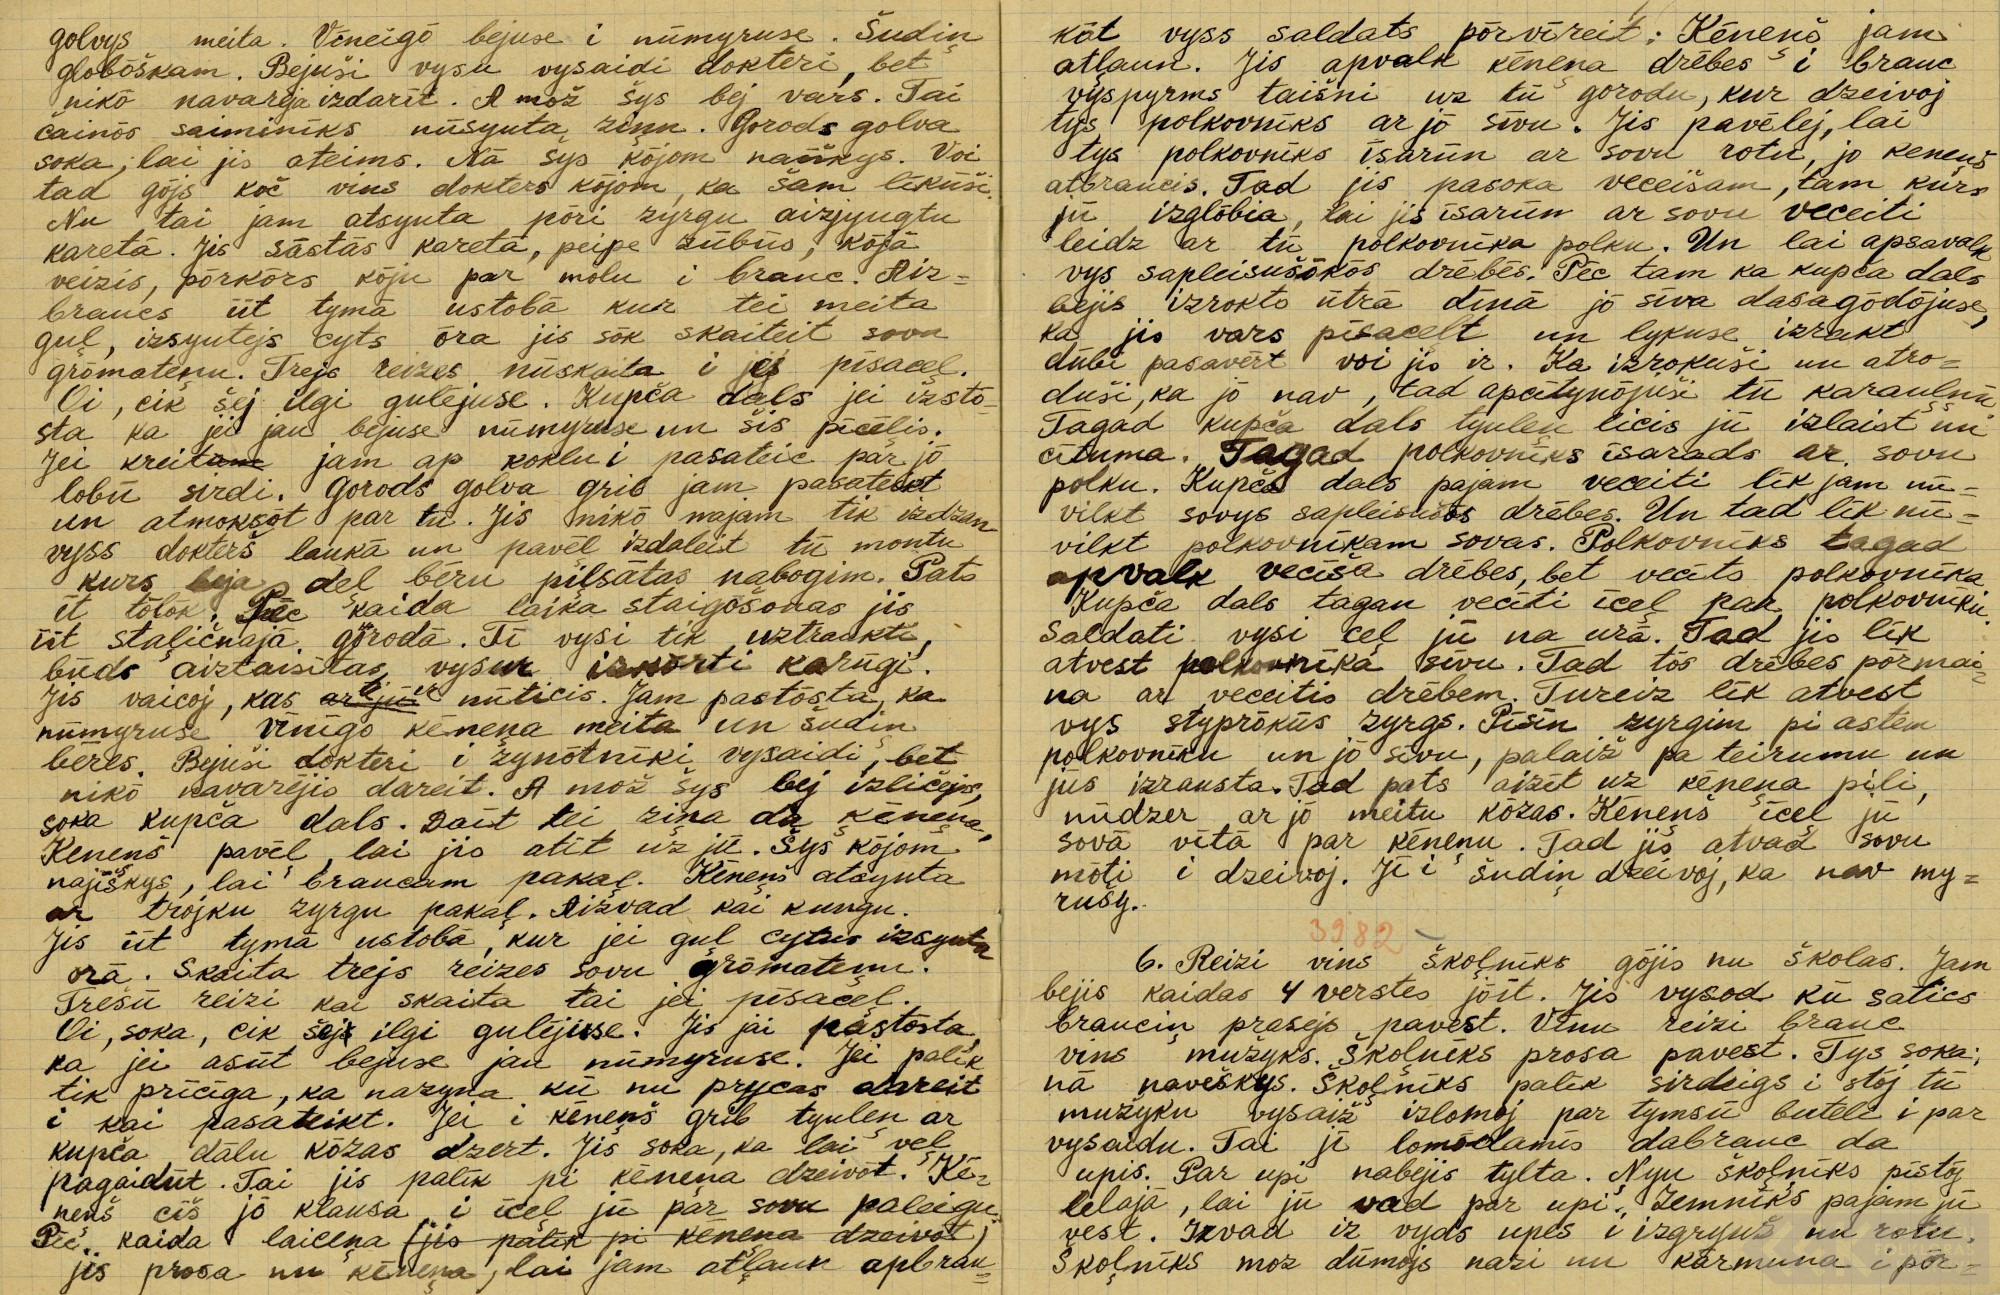 golvys meita. Vīneigō bejuse i nūmyruse. Šudiņ
globōškam. Bejuši vysu vysaidi dokteri, bet
nikō navarēja izdarīt. A mož šys bej vars. Tai
čainōs saiminīks nūsyuta ziņu. Gorods golva
soka, lai jis ateims. Nā šys kōjom naīškys. Voi
tad gōjs koč vīns dokters kōjom, ka šam līkūši.
Nu tai jam atsyuta pōri zyrgu aizjyugtu
karetā. Jis sāstās karetā, peipe zūbūs, kōjā
veizis, pōrkōrs kōju par molu i brauc. Aiz=
braucs īīt tymā ustobā kur tei meita
guļ, izsyutejs cyts ōra jis sōk skaiteit sovu
grōmateņu. Trejs reizes nūskaita i jei pīsaceļ.
Oi, cik šej ilgi gulējuse. Kupča dals jei izstō=
sta ka jei jau bejuse nūmyruse un šis pīcēlis.
Jei kreit jam ap koklu i pasateic par jō
lobū sirdi. Gorods golva grib jam pasateikt
un atmoksōt par tū. Jis nikō najam tik izdzan
vyss dokterš laukā un pavēl izdaleit tū montu
kurs beja deļ bēru piļsātas nabogim. Pats
īt tōlōk. Pēc kaida laika staigōšonas jis
īīt staļičnajā gorodā. Tī vysi tik uztraukti,
būds aiztaisītas, vysur izkōrti karūgi.
Jis vaicoj, kas te ir nūticis. Jam pastōsta, ka
nūmyruse vīnīgō kēneņa meita un šudiņ
bēres. Bejuši dokteri i zynōtnīki vysaidi, bet
nikō navarējis dareit. A mož šys bej izličejs,
soka kupča dals. Dāit tei ziņa da kēneņa,
Kēnenš pavēl, lai jis atīt uz jū. Šys kōjom
najīškys, lai braucam pakaļ. Kēnenš atsyuta
ar trojku zyrgu pakaļ. Aizvad kai kungu.
Jis īīt tymā ustobā, kur jei guļ cytus izsyuta
orā. Skaita trejs reizes sovu grōmateņu.
Trešū reizi kai skaita tai jei pīsaceļ.
Oi, soka, cik šej ilgi gulējuse. Jis jai pastōsta,
ka jei asūt bejuse jau nūmyruse. Jei palīk
tik prīcīga, ka nazyna kū nu prycas dareit
i kai pasateikt. Jei i kēnenš grib tyuleņ ar
kupča dālu kōzas dzert. Jis soka, ka lai vēl
pagaidūt. Tai jis palīk pi kēneņa dzeivōt. Kē=
nenš cīš jō klausa i īceļ jū par sovu paleigu.
Pēc kaida laiceņa (jis palīk pi kēneņa dzeivōt)
jis prosa nu kēneņa, lai jam atļaun apbrau=
kōt vyss saldats pōrvīreit. Kēnenš jam
atļaun. Jis apvalk kēneņa drēbes i brauc
vyspyrms taišni uz tū gorodu, kur dzeivoj
tys polkovnīks ar jō sīvu. Jis pavēlej, lai
tys polkovnīks īsarūn ar sovu rotu, jo kenenš
atbraucis. Tad jis pasoka veceišam, tam kurs
jū izglōbia, lai jis īsarūn ar sovu veceiti
leidz ar tū polkovnīka polku. Un lai apsavalk
vys sapleisušōkōs drēbēs. Pēc tam ka kupča dals
bejis izrokts ūtrā dīnā jō sīva dasagōdōjuse,
ka jis vars pīsaceļt un lykuse izrakt
dūbi pasavērt voi jis ir. Ka izrokuši un atro=
duši, ka jō nav, tad apcītynōjuši tū karauļnū.
Tagad kupča dals tyuleņ licis jū izlaist nu
cītuma. Tagad polkovnīks īsarads ar sovu
polku. Kupča dals pajam veceiti līk jam nū=
vilkt sovys sapleisušōs drēbes. Un tad līk nū=
vilkt polkovnīkam sovas. Polkovnīks tagad
apvalk vecīša drēbes, bet vecīts polkovnīka
Kupča dals tagan vecīti īceļ par polkovnīku.
Saldati vysi ceļ jū na urā. Tad jis līk
atvest polkovnīka sīvu. Tad tōs drēbes pōrmai=
na ar veceitis drēbem. Tureiz līk atvest
vys styprōkūs zyrgs. Pīsīn zyrgim pi astem
polkovnīku un jō sīvu, palaiž pa teirumu un
jūs izrausta. Tad pats aizīt uz kēneņa pili,
nūdzer ar jō meitu kōzas. Kēnenš īceļ jū
sovā vītā par kēneņu. Tad jis atvad sovu
mōti i dzeivoj. Jī i šudiņ dzeivoj, ka nav my=
rušy.
3982
6. Reizi vīns školņīks gōjis nu školas. Jam
bejis kaidas 4 verstes jōīt. Jis vysod kū satics
braucin prasejs pavest. Vīnu reizi brauc
vīns mužyks. Školņīks prosa pavest. Tys soka:
nā naveškys. Školņīks palīk sirdeigs i stōj tū
mužyku vysaiž izlomoj par tymsū buteli i par
vysaidu. Tai jī lomōdamīs dabrauc da
upis. Par upi nabejis tylta. Nyu školņīks pīstōj
lelajā, lai jū vad par upi. Zemnīks pajam jū
vest. Izvad iz vyds upes i izgryuž nu rotu.
Školņīks moz dūmojs nazi nu karmuna i pōr=